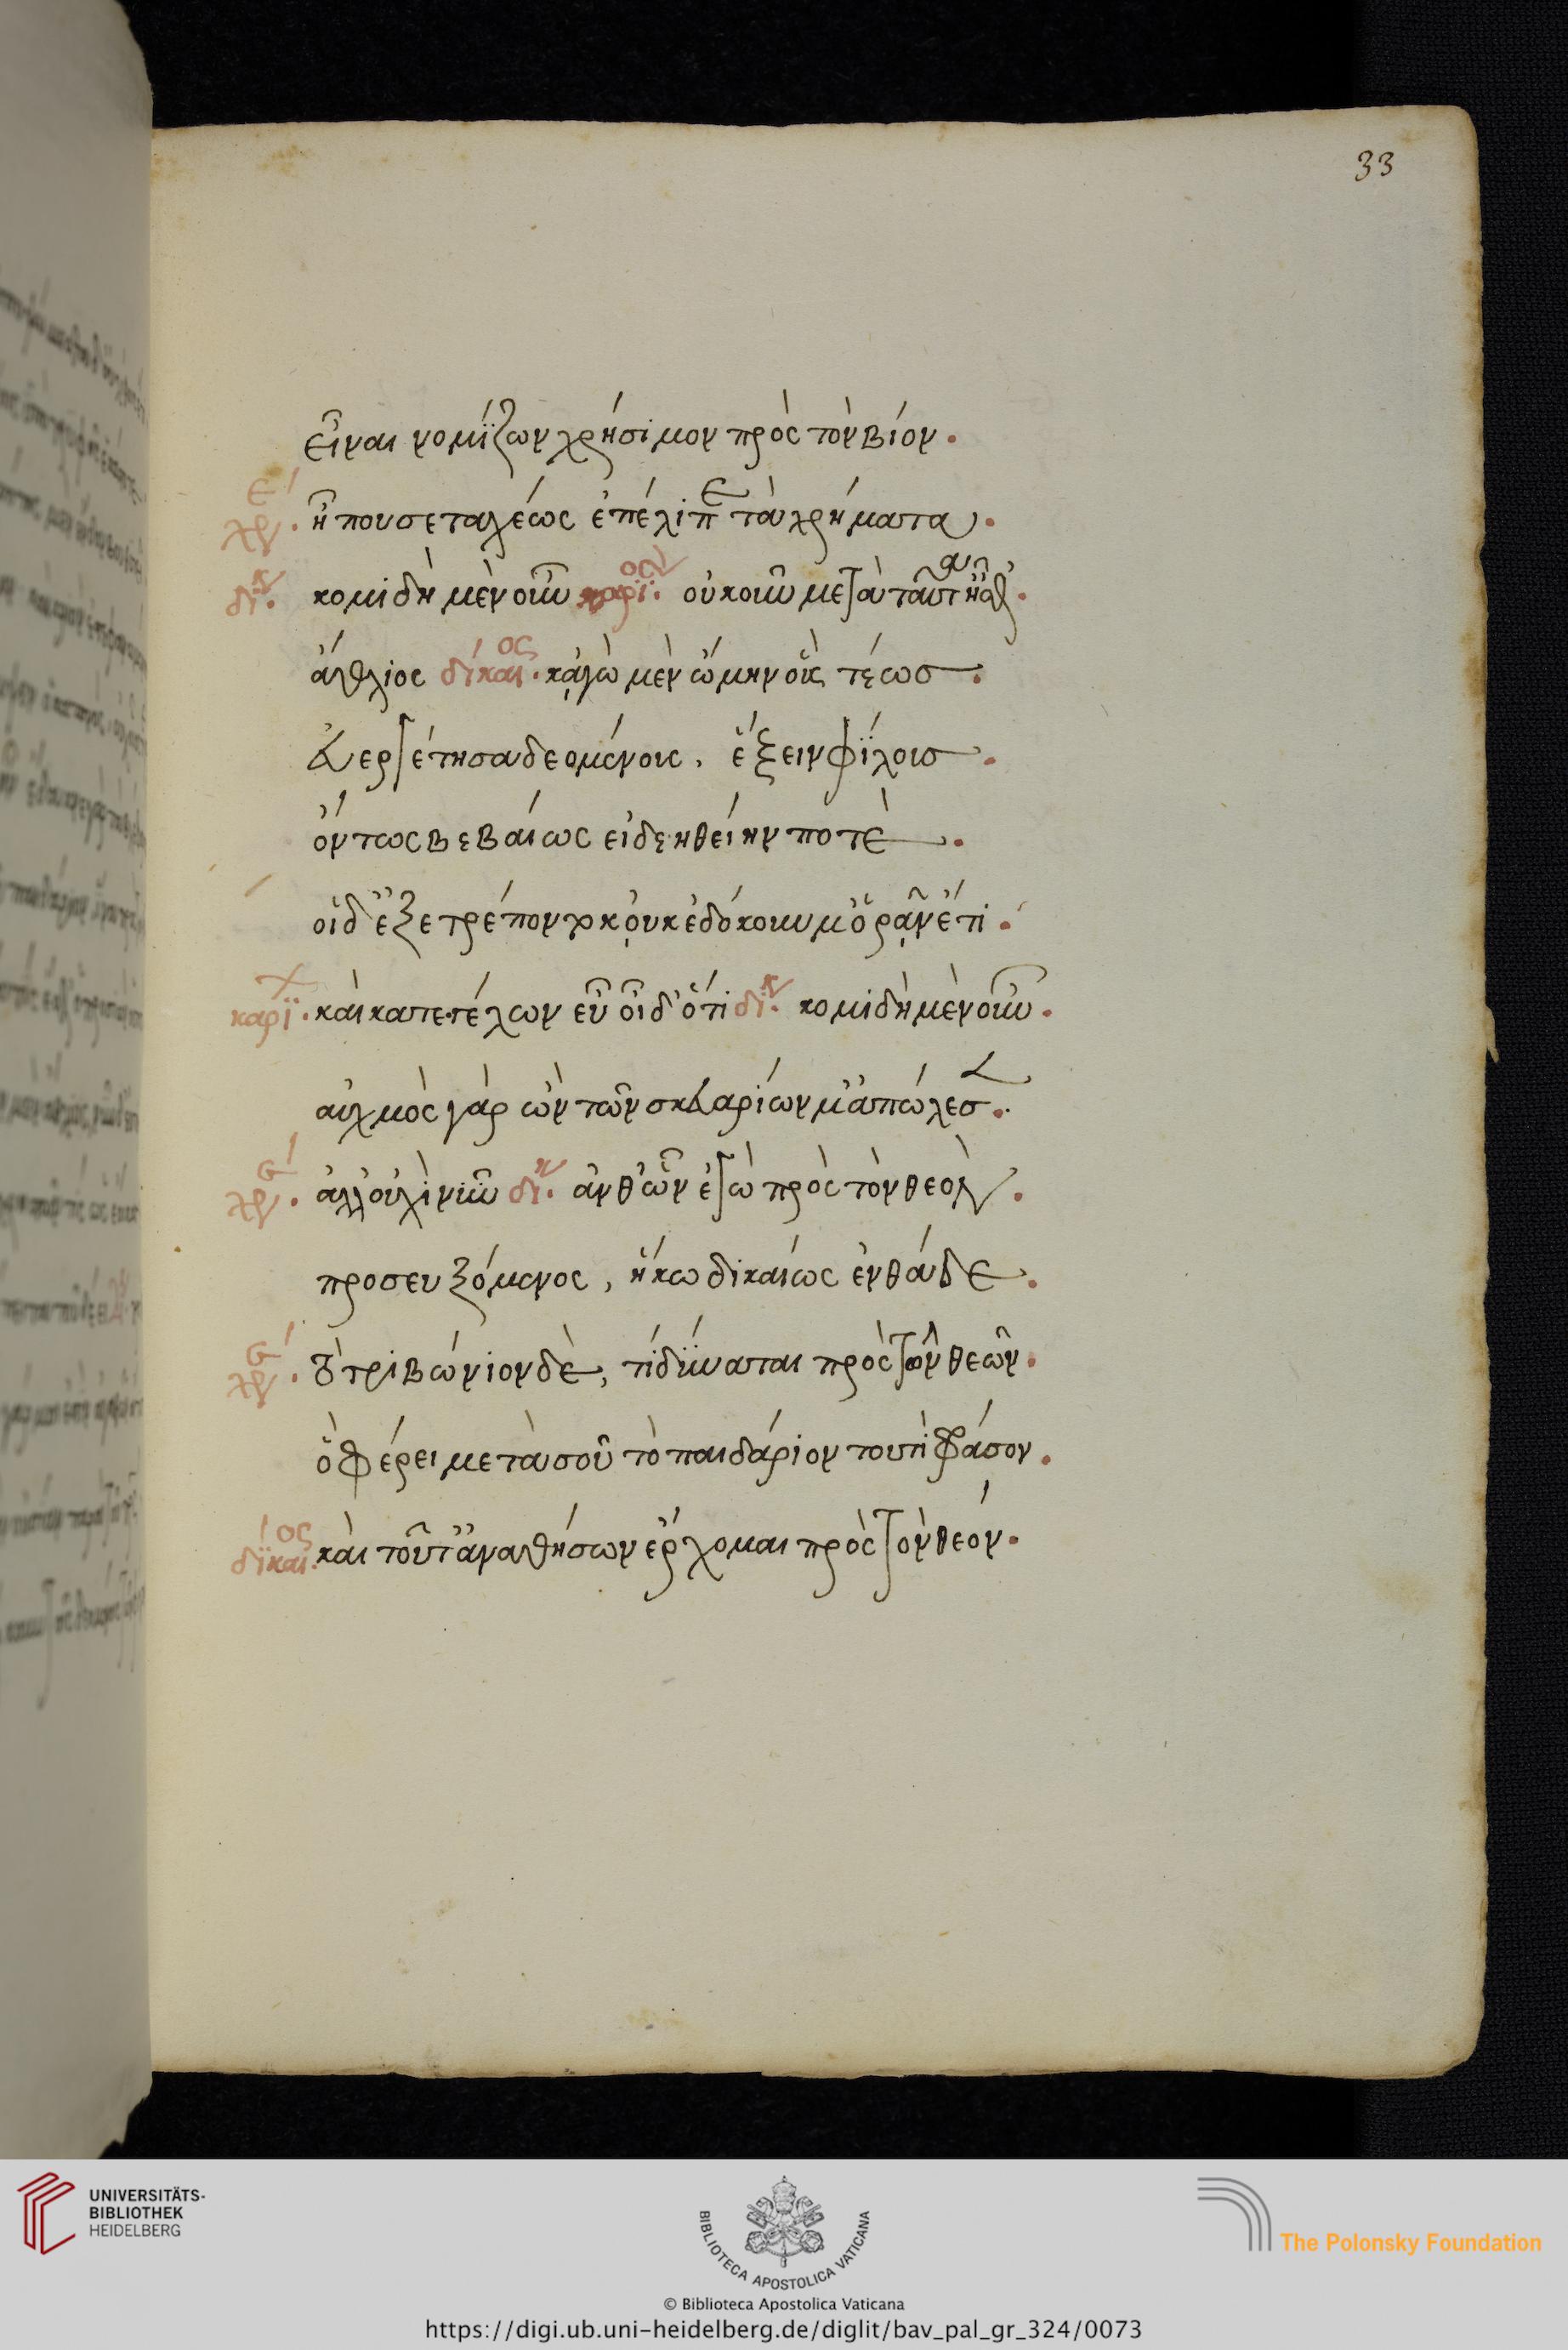 33
εἶναι νομίζων χρήσιμον πρὸς τὸν βίον.
χρε. ἦ που σε ταχέως ἐπέλιπε τὰ χρήματα.
δικ. κομιδῆ μὲν οὖν καρί. οὐκοῦν μετὰ ταῦτ ἦσθ.
ἄθλιος δίκαιος. κἀγὼ μὲν ᾤμην οὓς τέως.
εὐεργέτησα δεομένους, ἕξειν φίλους.
ὄντως βεβαίως εἰ δεηθείην ποτέ.
οἱ δ' ἐξετρέποντο κοὐκ ἐδόκουν μ' ὁρᾶν ἔτι.
καρί. καὶ κατεγέλων εὖ οἶδ' ὅτι δικ. κομιδῆ μὲν οὖν.
αὐχμὸς γὰρ ὢν τῶν σκευαρίων μ' ἀπώλεσεν.
χρε. ἀλλ' οὐχὶ νῦν δικ. ἀνθ' ὧν ἐγὼ πρὸς τὸν θεὸν.
προσευξόμενος, ἥκω δικαίως ἐνθάδε.
χρε. τὸ τριβώνιον δὲ, τί δύναται πρὸς τῶν θεῶν.
ὃ φέρει μετὰ σοῦ τὸ παιδάριον τουτὶ φράσον.
δίκαιος. καὶ τοῦτ' ἀναθήσων ἔρχομαι πρὸς τὸν θεόν.
UNIVERSITÄTS-
BIBLIOTHEK
HEIDELBERG
BIBLIOTECA APOSTOLICA VATICANA
The Polonsky Foundation
© Biblioteca Apostolica Vaticana
https://digi.ub.uni-heidelberg.de/diglit/bav_pal_gr_324/0073